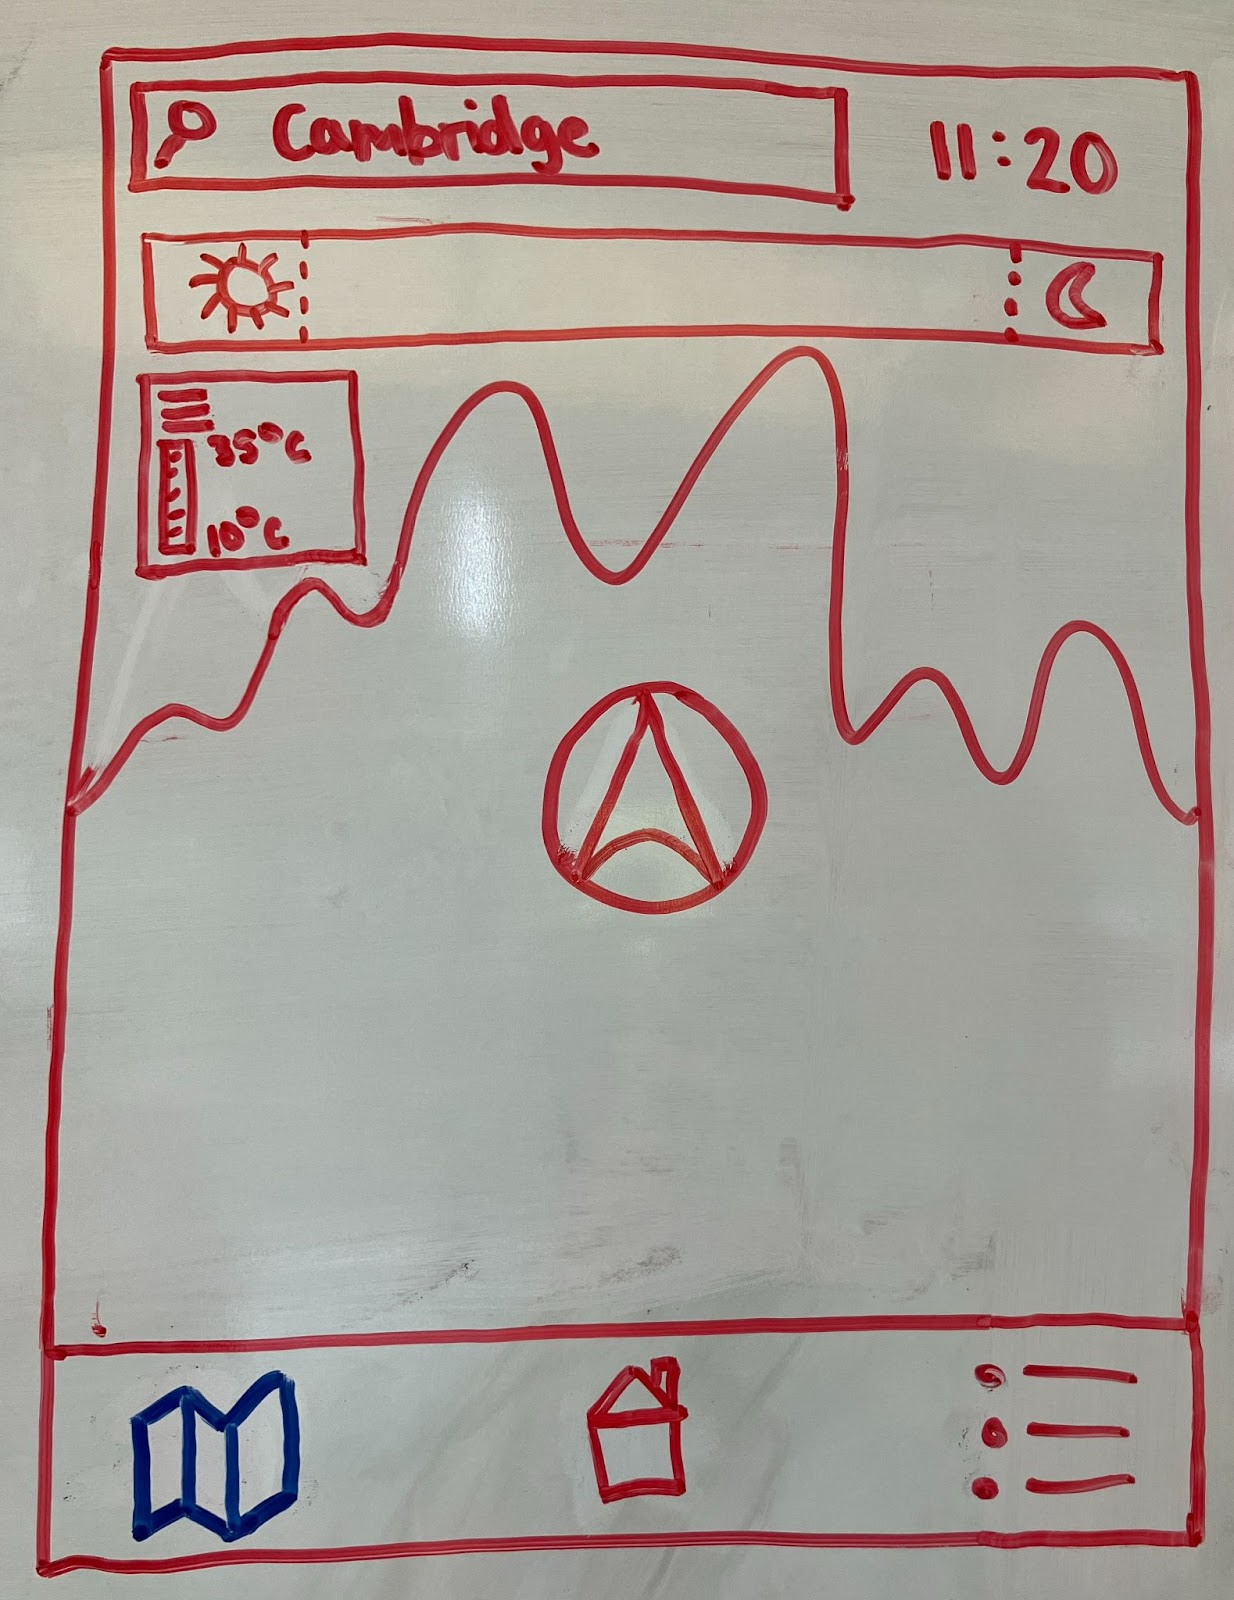 Cambridge
11:20
35°C
10°C